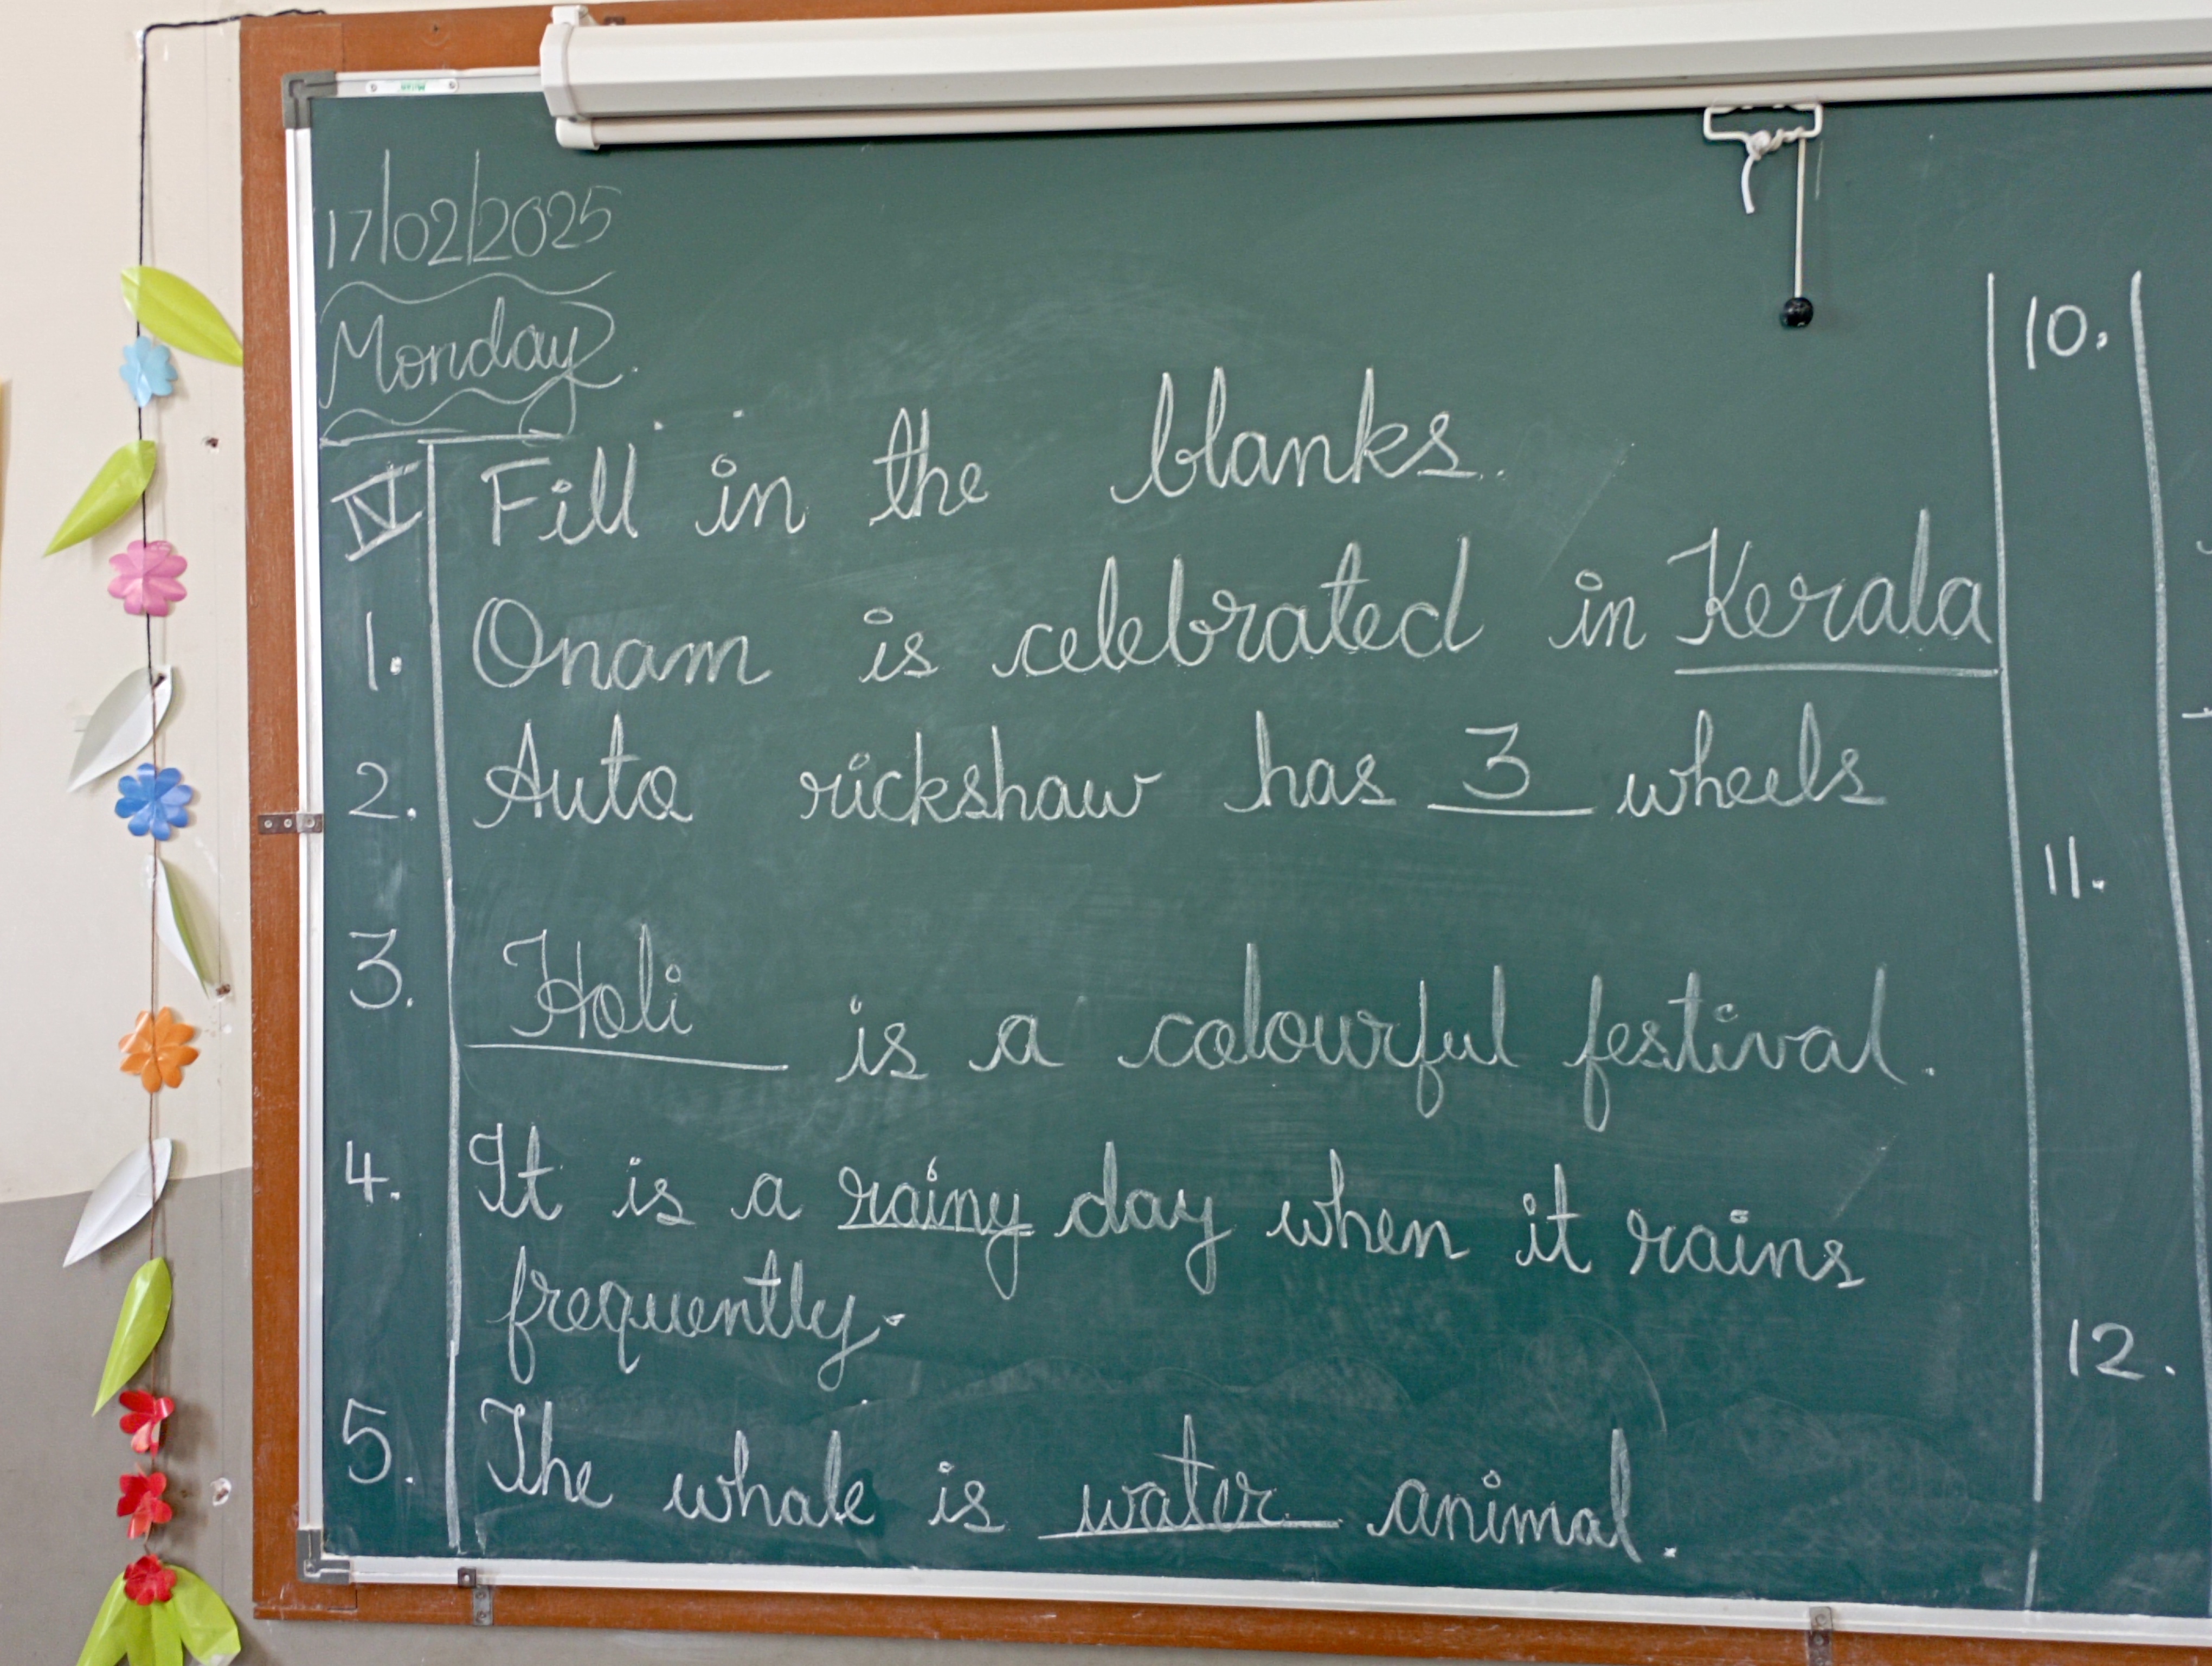 17/02/2025
Monday.
IV Fill in the blanks.
1. Onam is celebrated in Kerala
2. Auto rickshaw has 3 wheels
3. Holi is a colourful festival.
4. It is a rainy day when it rains
frequently.
5. The whale is water animal.
10.
11.
12.